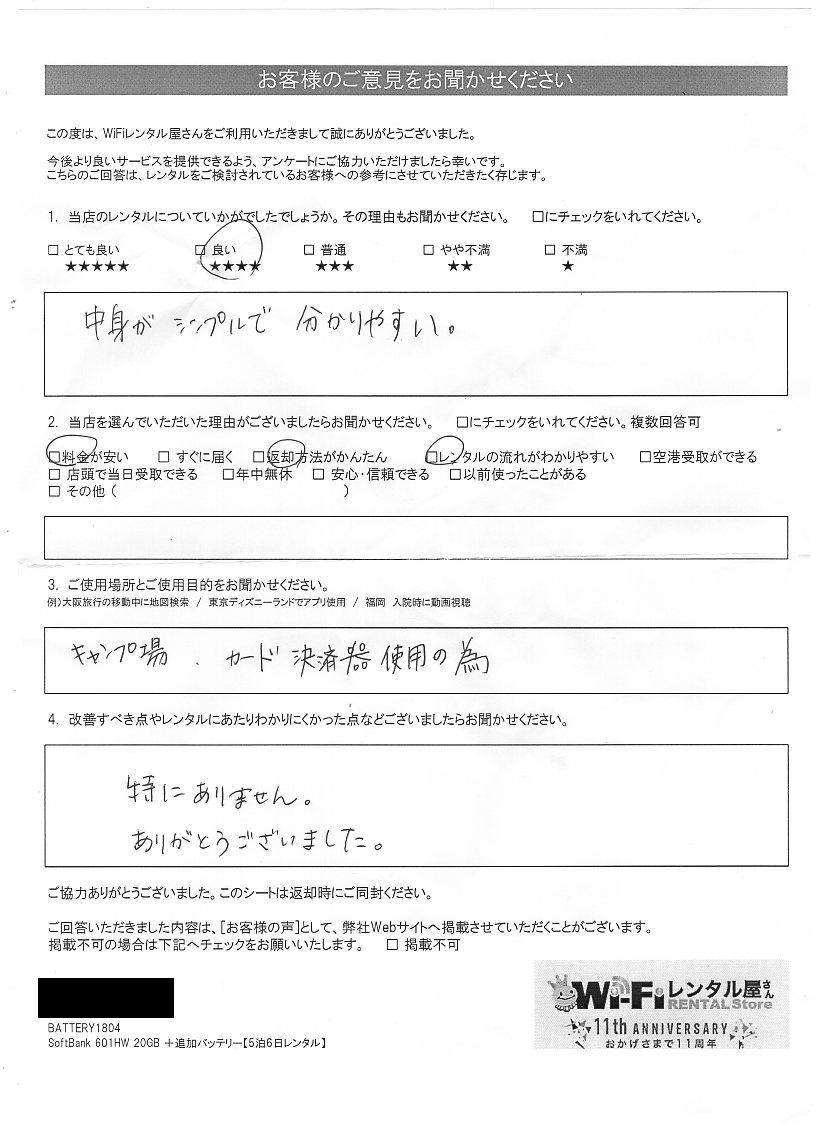 お客様のご意見をお聞かせください
この度は、WiFiレンタル屋さんをご利用いただきまして誠にありがとうございました。
今後より良いサービスを提供できるよう、アンケートにご協力いただけましたら幸いです。
こちらのご回答は、レンタルをご検討されているお客様への参考にさせていただきたく存じます。
1. 当店のレンタルについていかがでしたでしょうか。その理由もお聞かせください。 □にチェックをいれてください。
□ とても良い □ 良い □ 普通 □ やや不満 □ 不満
★★★★★ ★★★★ ★★★ ★★ ★
中身が シンプルで 分かりやすい。
2. 当店を選んでいただいた理由がございましたらお聞かせください。 □にチェックをいれてください。複数回答可
□料金が安い □ すぐに届く □返却方法がかんたん □レンタルの流れがわかりやすい □空港受取ができる
□ 店頭で当日受取できる □年中無休 □ 安心・信頼できる □以前使ったことがある
□ その他 ( )
3. ご使用場所とご使用目的をお聞かせください。
例)大阪旅行の移動中に地図検索 / 東京ディズニーランドでアプリ使用 / 福岡 入院時に動画視聴
キャンプ場 、カード 決済器 使用の為
4. 改善すべき点やレンタルにあたりわかりにくかった点などございましたらお聞かせください。
特にありません。
ありがとうございました。
ご協力ありがとうございました。このシートは返却時にご同封ください。
ご回答いただきました内容は、[お客様の声]として、弊社Webサイトへ掲載させていただくことがございます。
掲載不可の場合は下記へチェックをお願いいたします。 □ 掲載不可
BATTERY1804
SoftBank 601HW 20GB +追加バッテリー【5泊6日レンタル】
Wi-Fiレンタル屋さん
RENTAL Store
11th ANNIVERSARY
おかげさまで11周年